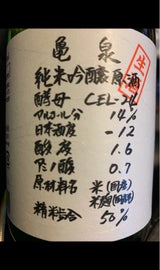 亀泉
生
純米吟醸原酒
酵母 CEL-24
アルコール分 14%
日本酒度 -12
酸度 1.6
アミノ酸 0.7
原材料名 米(国産)
米麹(国産米)
精米歩合 50%